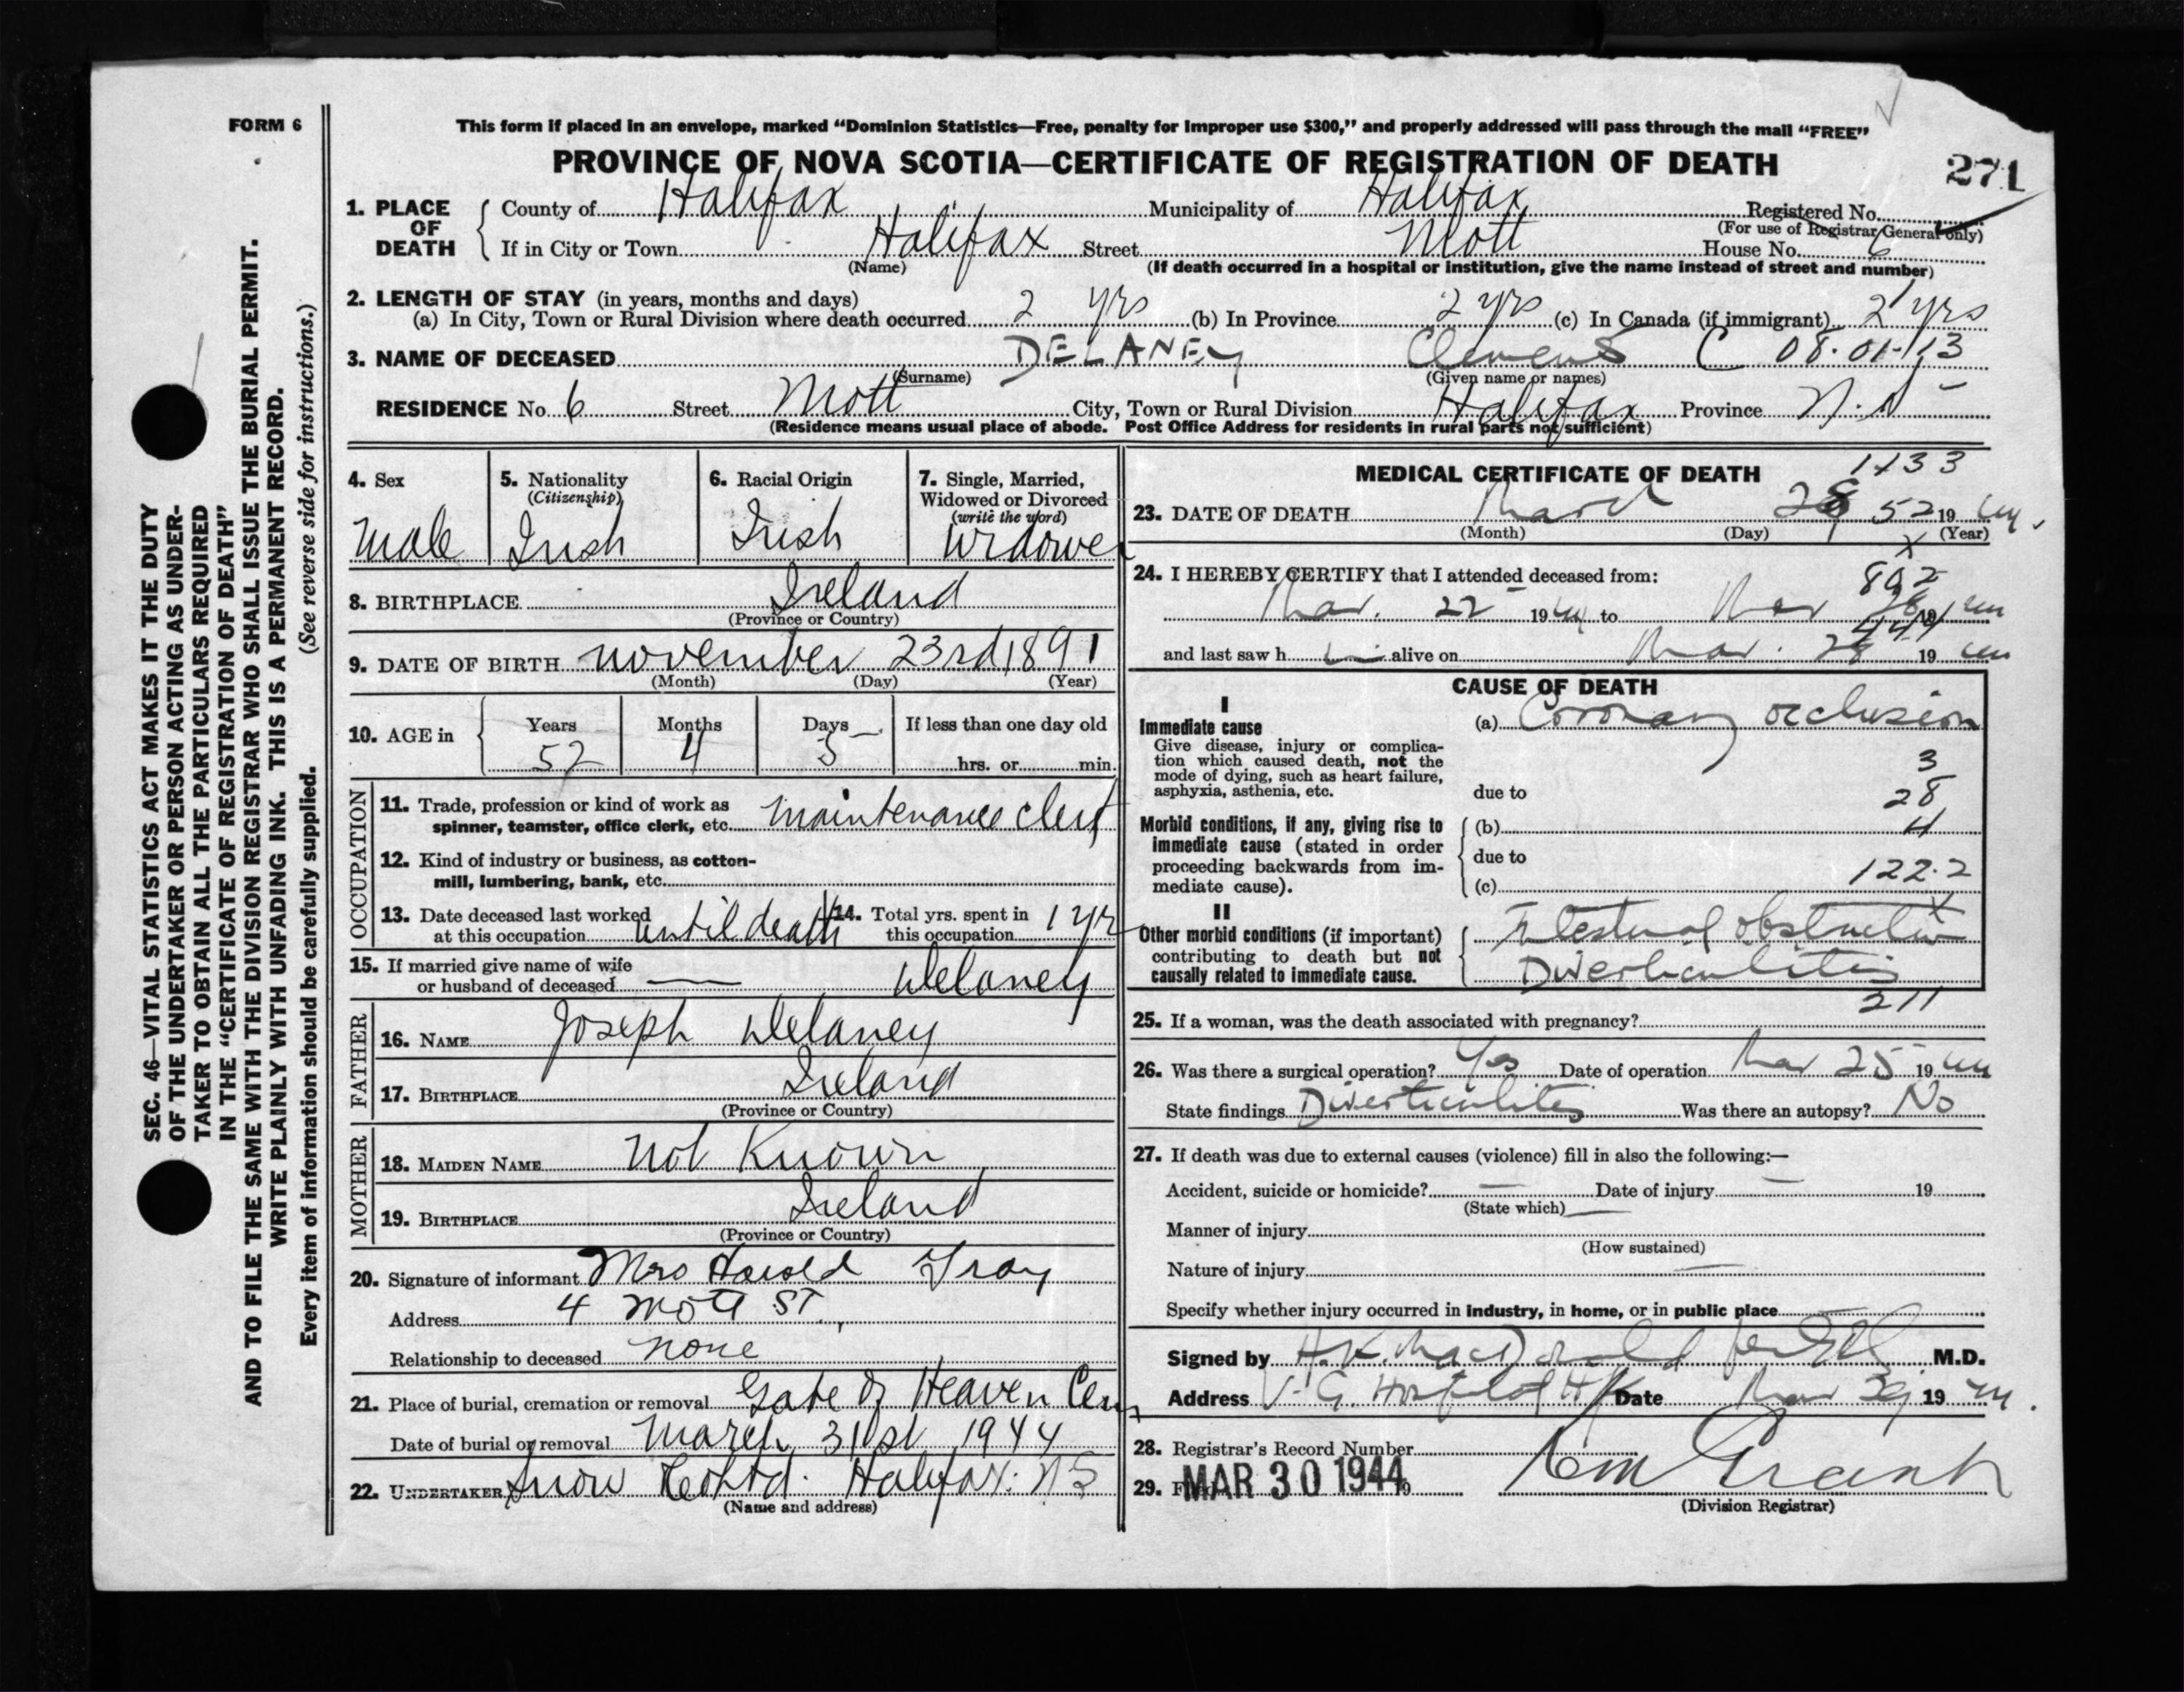 FORM 6
This form if placed in an envelope, marked “Dominion Statistics—Free, penalty for improper use $300,” and properly addressed will pass through the mail “FREE”
PROVINCE OF NOVA SCOTIA—CERTIFICATE OF REGISTRATION OF DEATH
271
1. PLACE OF DEATH County of Halifax Municipality of Halifax Registered No.
(For use of Registrar General only)
If in City or Town Halifax Street Mott House No. 6
(Name) (If death occurred in a hospital or institution, give the name instead of street and number)
2. LENGTH OF STAY (in years, months and days)
(a) In City, Town or Rural Division where death occurred 2 yrs (b) In Province 2 yrs (c) In Canada (if immigrant) 2 yrs
3. NAME OF DECEASED DELANEY Clement C 08-01-113
(Surname) (Given name or names)
RESIDENCE No. 6 Street Mott City, Town or Rural Division Halifax Province N.S
(Residence means usual place of abode. Post Office Address for residents in rural parts not sufficient)
4. Sex Male
5. Nationality (Citizenship) Irish
6. Racial Origin Irish
7. Single, Married, Widowed or Divorced (write the word) Widower
8. BIRTHPLACE Ireland
(Province or Country)
9. DATE OF BIRTH November 23rd 1891
(Month) (Day) (Year)
10. AGE in Years 52 Months 4 Days 5 If less than one day old
hrs. or min.
OCCUPATION
11. Trade, profession or kind of work as
spinner, teamster, office clerk, etc. Maintenance Clerk
12. Kind of industry or business, as cotton-
mill, lumbering, bank, etc.
13. Date deceased last worked at this occupation until death 14. Total yrs. spent in this occupation 1 yr
15. If married give name of wife
or husband of deceased — Delaney
FATHER
16. NAME Joseph Delaney
17. BIRTHPLACE Ireland
(Province or Country)
MOTHER
18. MAIDEN NAME Not Known
19. BIRTHPLACE Ireland
(Province or Country)
20. Signature of informant Mrs Harold
Address 4 Mott ST.
Relationship to deceased none
21. Place of burial, cremation or removal Gate of Heaven Cem
Date of burial or removal March 31st 1944
22. UNDERTAKER Snow & Co Ltd. Halifax. N S
(Name and address)
MEDICAL CERTIFICATE OF DEATH 1133
23. DATE OF DEATH March 28 52 19 44.
(Month) (Day) (Year)
x
24. I HEREBY CERTIFY that I attended deceased from: 802
Mar. 22 19 44 to Mar 28 19 44
444
and last saw h im alive on Mar. 28 19 44
CAUSE OF DEATH
I
Immediate cause (a) Coronary occlusion
Give disease, injury or complica-
tion which caused death, not the
mode of dying, such as heart failure,
asphyxia, asthenia, etc. due to
3
28
4
Morbid conditions, if any, giving rise to (b)
immediate cause (stated in order due to
proceeding backwards from im-
mediate cause). (c) 122.2
x
II
Other morbid conditions (if important) Intestinal obstruction
contributing to death but not
causally related to immediate cause. Diverticulitis
211
25. If a woman, was the death associated with pregnancy?
26. Was there a surgical operation? Yes Date of operation Mar 25 19 44
State findings Diverticulitis Was there an autopsy? No
27. If death was due to external causes (violence) fill in also the following:—
Accident, suicide or homicide? — Date of injury — 19
(State which)
Manner of injury
(How sustained)
Nature of injury
Specify whether injury occurred in industry, in home, or in public place
Signed by H.K. MacDonald M.D.
Address V.G. Hospital Hfx Date Mar 19 44.
28. Registrar's Record Number
29. MAR 30 1944 Grant
(Division Registrar)
SEC. 46—VITAL STATISTICS ACT MAKES IT THE DUTY
OF THE UNDERTAKER OR PERSON ACTING AS UNDER-
TAKER TO OBTAIN ALL THE PARTICULARS REQUIRED
IN THE “CERTIFICATE OF REGISTRATION OF DEATH”
AND TO FILE THE SAME WITH THE DIVISION REGISTRAR WHO SHALL ISSUE THE BURIAL PERMIT.
WRITE PLAINLY WITH UNFADING INK. THIS IS A PERMANENT RECORD.
Every item of information should be carefully supplied. (See reverse side for instructions.)